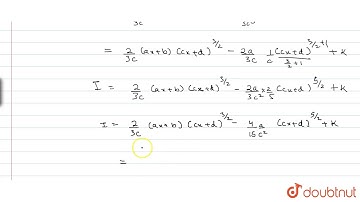 3c 3c
= 2/3c (ax+b) (cx+d)^3/2 - 2a/3c 1/c (cx+d)^3/2+1 / 3/2+1 + K
I = 2/3c (ax+b) (cx+d)^3/2 - 2a/3c² × 2/5 (cx+d)^5/2 + K
I = 2/3c (ax+b) (cx+d)^3/2 - 4a/15c² (cx+d)^5/2 + K
=
doubtnut